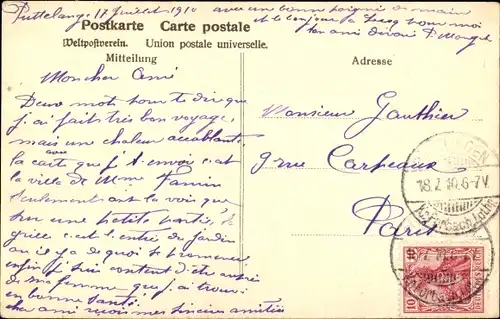 Puttelange, 17 Juillet 1910 avec une bonne poignée de main
Postkarte Carte postale
Weltpostverein. Union postale universelle.
Mitteilung
Adresse
Mon cher Ami
Deux mots pour te dire que
j'ai fait très bon voyage,
mais un chaleur accablante
la carte que j't envoie c'est
la ville de Mme
Seulement ont la voit que
sur une petite partie,
grille c'est l'entrée du jardin
ou il y a de quoi se promener
enfin je suis content d'être auprès
de ma femme que j'ai trouvé
en bonne santé
cher ami reçois mes sincères amitiés
Monsieur Gauthier
9 rue Carpeaux
Paris
18.7.10.6-7V.
10 10
DEUTSCHES REICH